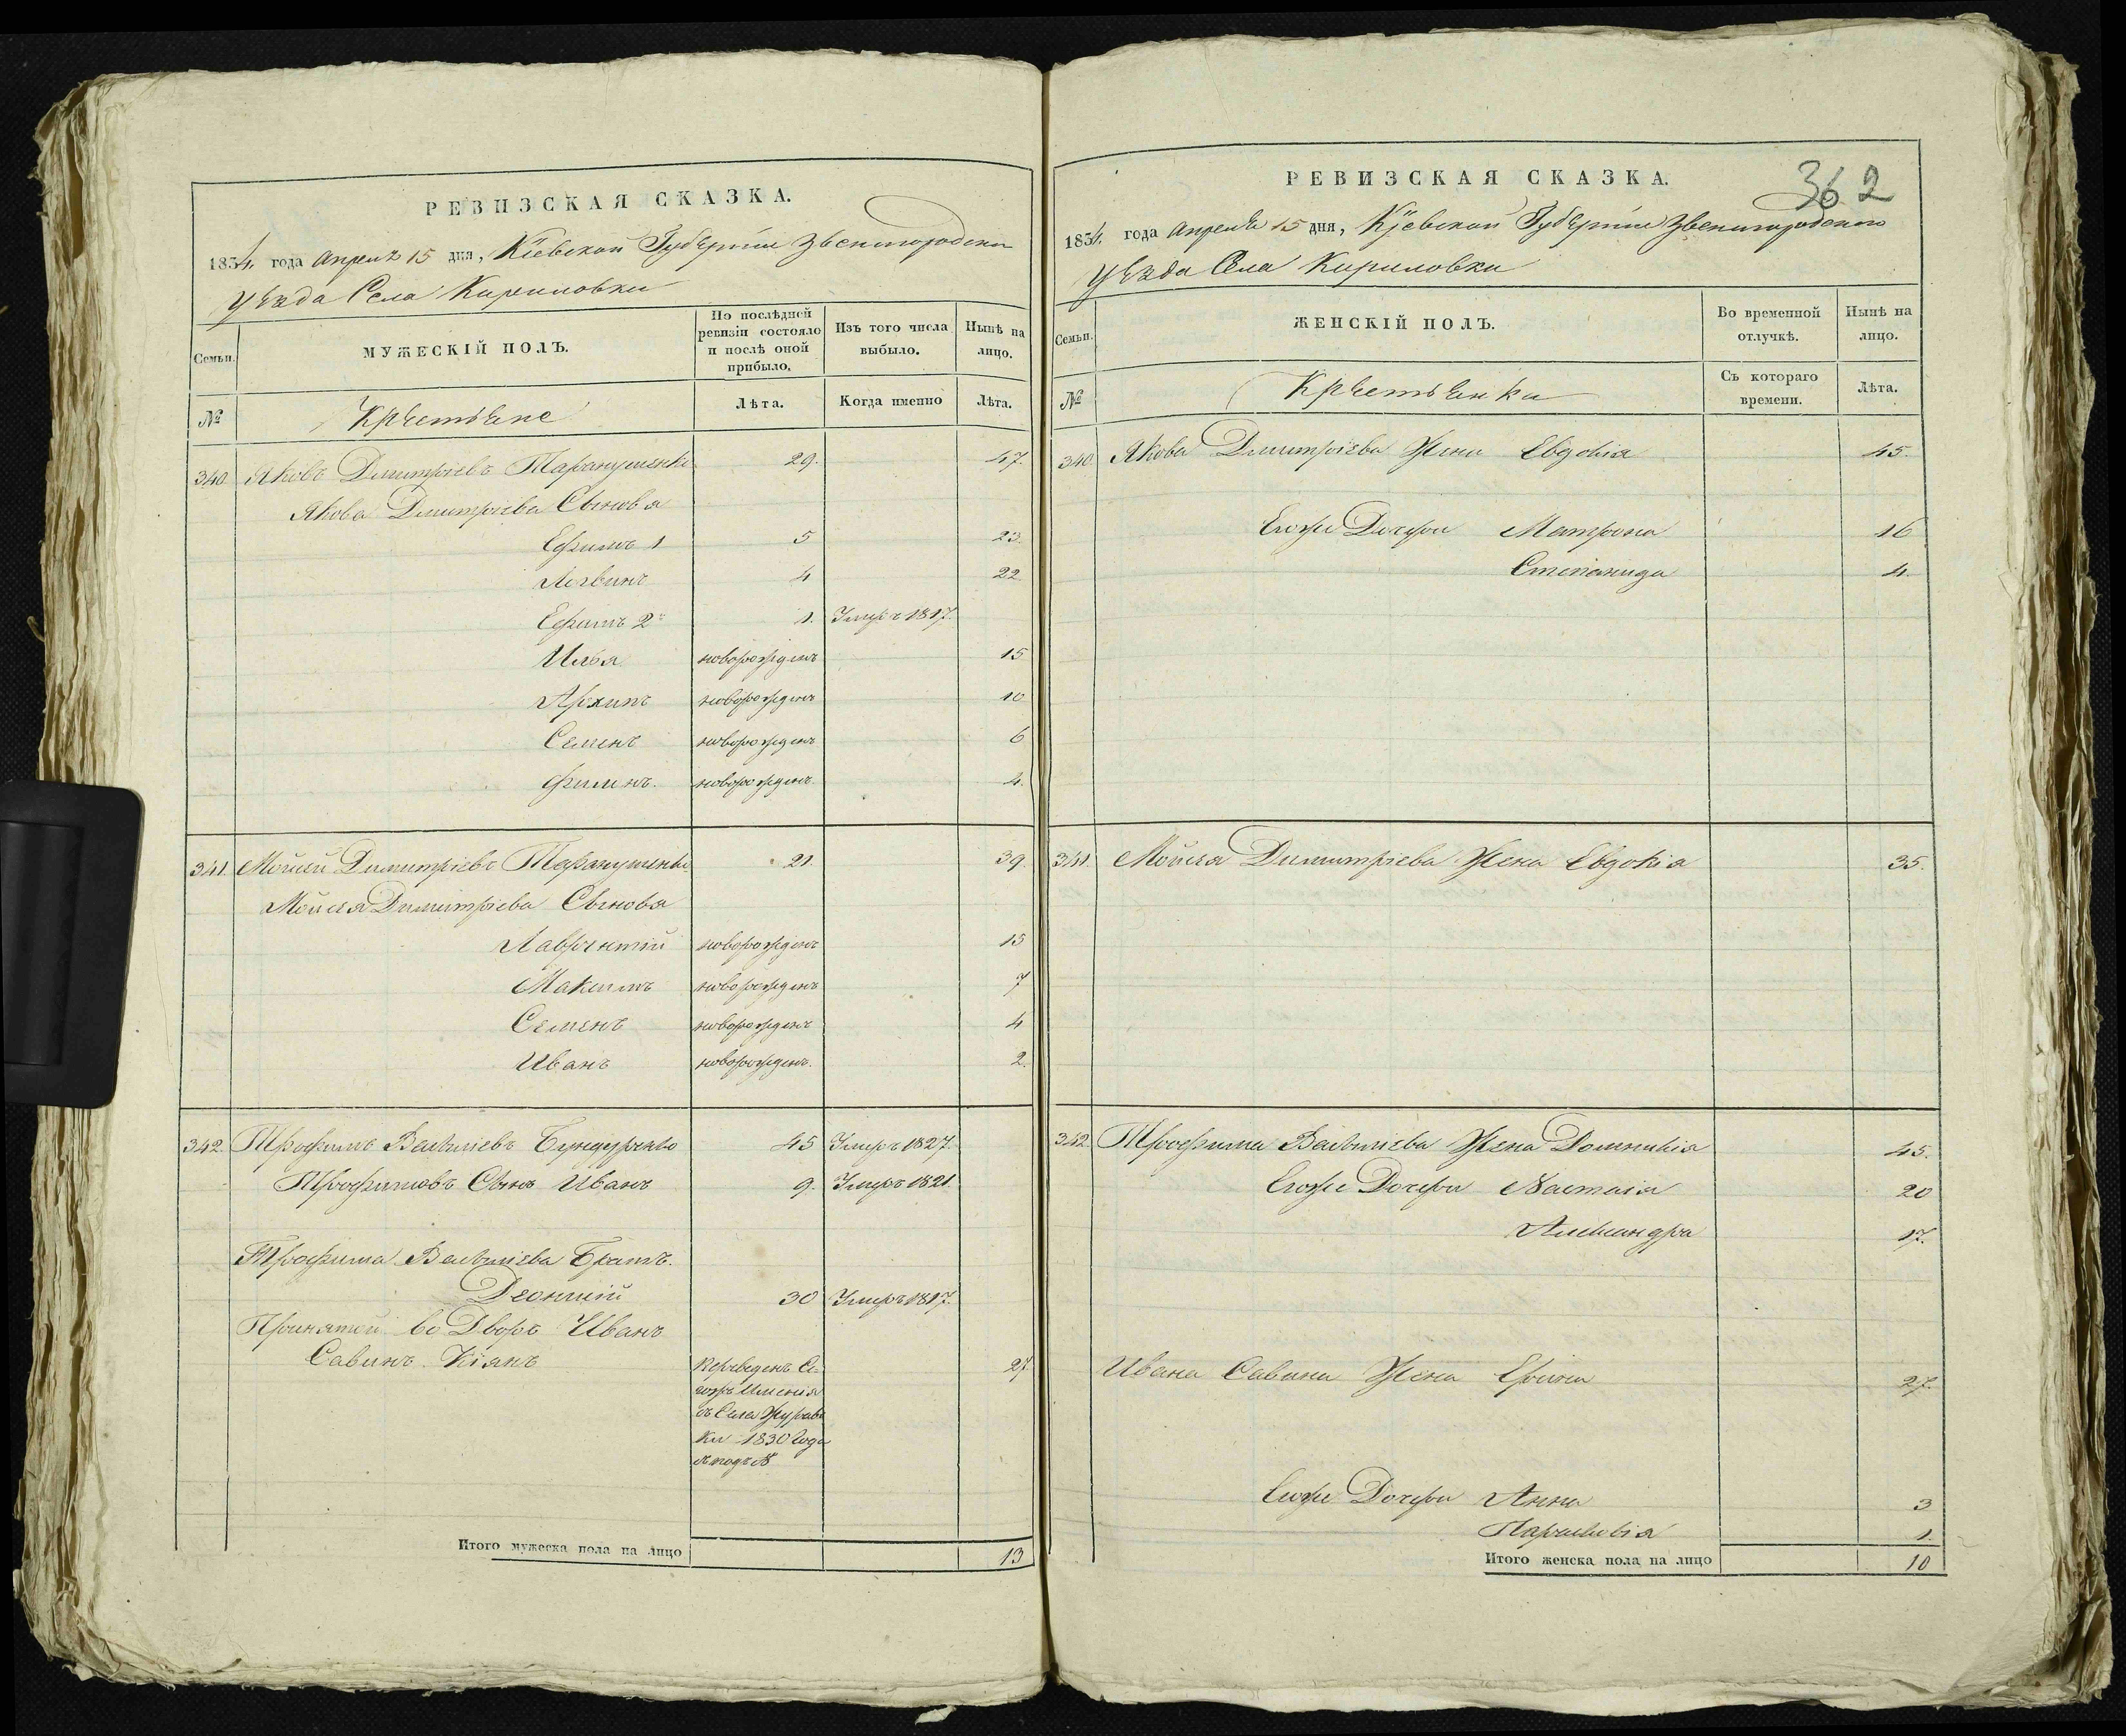 РЕВИЗСКАЯ СКАЗКА.
1834 года Апреля 15 дня, Кіевской Губерніи Звенигородска
Уѣзда Села Кириловки
Семьи.
МУЖЕСКІЙ ПОЛЪ.
По послѣдней ревизіи состояло и послѣ оной прибыло.
Изъ того числа выбыло.
Нынѣ на лицо.
№
Крестьяне
Лѣта.
Когда именно
Лѣта.
340. Яковъ Димитріевъ Таранушенко 29. 47.
Якова Димитріева Сыновья
Ефимъ 1 5 23.
Логвинъ 4 22
Ефимъ 2й 1. Умеръ 1817.
Илья новорожденъ 15
Архипъ новорожденъ 10
Семенъ новорожденъ 6
новорожденъ 4.
341. Мойсей Димитріевъ Таранушенко 21. 39.
Мойсея Димитріева Сыновья
Лаврентій новорожденъ 15
Максимъ новорожденъ 7
Семенъ новорожденъ 4
Иванъ новорожденъ. 2.
342. Трофимъ Васильевъ 45 Умеръ 1827.
Трофимовъ Сынъ Иванъ 9. Умеръ 1821.
Трофима Васильева Братъ.
Леонтій 30 Умеръ 1817.
Принятой во Дворъ Иванъ
Савинъ Кіянъ Переведенъ Се- 27
гожъ Имѣнія
съ Села Журав
ки 1830 Года
подъ №
Итого мужеска пола на лицо 13
РЕВИЗСКАЯ СКАЗКА.
362
1834. года Апреля 15 дня, Кіевской Губерніи Звенигородского
Уѣзда Села Кириловки
Семьи.
ЖЕНСКІЙ ПОЛЪ.
Во временной отлучкѣ.
Нынѣ на лицо.
№
Крестьянки
Съ котораго времени.
Лѣта.
340. Якова Димитріева Жена Евдокія 45.
Егоже Дочери Матрона 16
Степанида 4.
341. Мойсея Димитріева Жена Евдокія 35.
342 Трофима Васильева Жена Домникія 45.
Егоже Дочери Настасія 20
Александра 17.
Ивана Савина Жена Ефимія 27.
Егоже Дочери Анна 3
Парасковія 1.
Итого женска пола на лицо 10